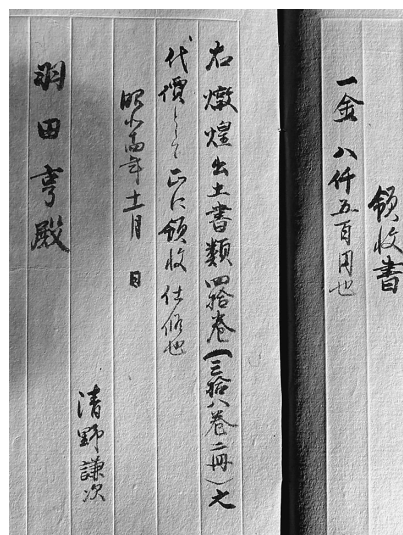 領收書
一金 八仟五百円也
右燉煌出土書類四拾巻(三拾八巻二冊)之
代價として正に領收仕候也
昭和十四年十一月 日
清野謙次
羽田亨殿